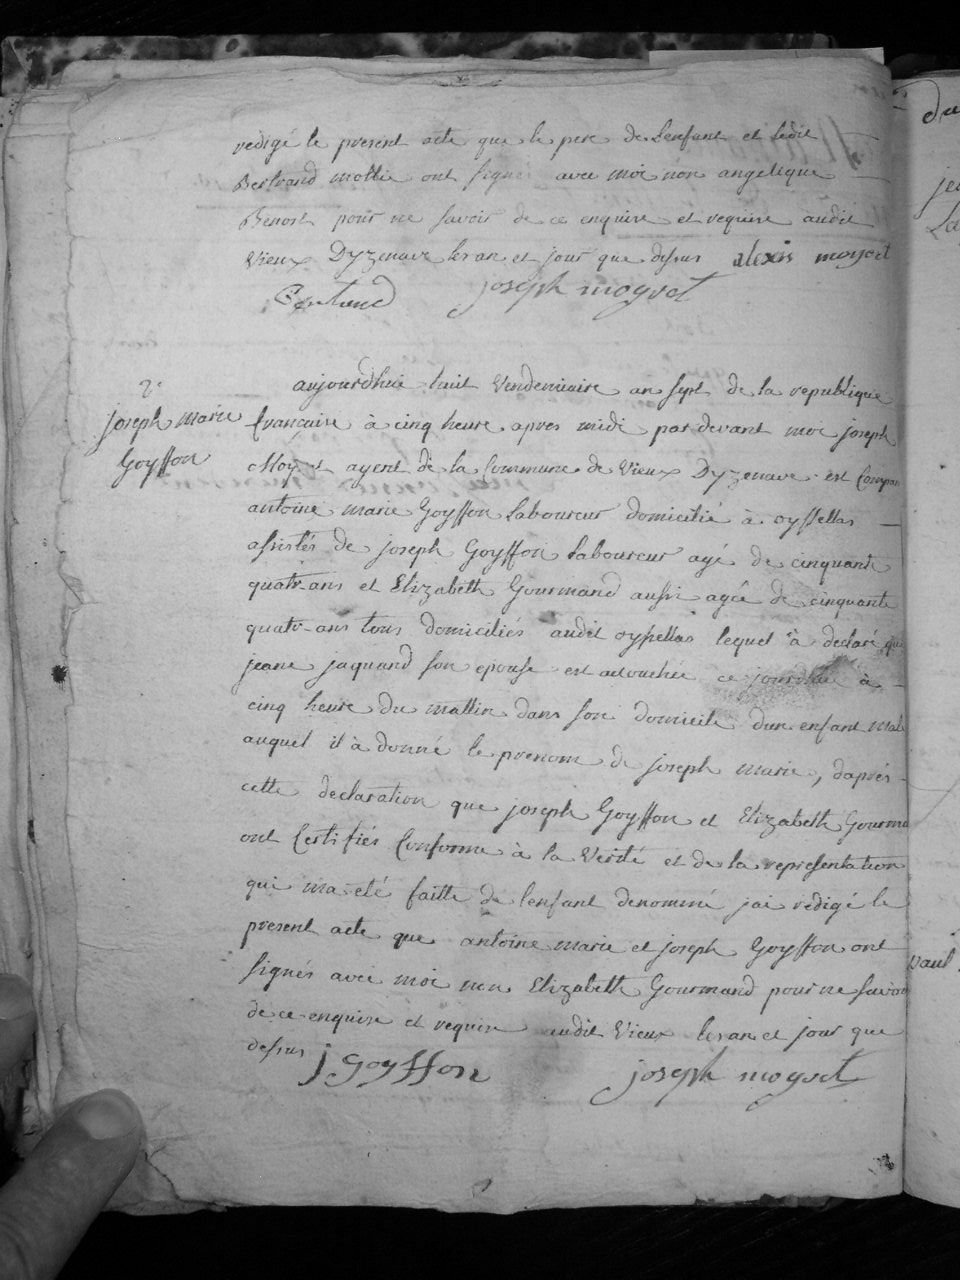 redigé le present acte que le pere de lenfant et ledit
Bertrand mottie ont signés avec moi non angelique
Benost pour ne savoir de ce enquise et requise audit
vieux Dyzenave les an et jour que dessus alexis moyret
Bertrand joseph moyret
2e
joseph marie
Goyffon
aujourdhui huit Vendemiaire an sept de la republique
francaise à cinq heure apres midi par devant moi joseph
Moyret agent de la Commune de Vieux Dyzenave est Compar
antoine marie Goyffon Laboureur domicilié à oyssellas
assistés de joseph Goyffon Laboureur agé de cinquante
quatr-ans et Elizabeth Gourmand aussi agée de cinquante
quatr-ans tous domiciliés audit oyssellas lequel à declaré que
jeane jaquand son epouse est acouchée ce jourdhui à
cinq heure du mattin dans son domicile dun enfant mal
auquel il à donné le prenom de joseph marie, daprés
cette declaration que joseph Goyffon et Elizabeth Gourma
ont Certifiés Conforme à la Verité et de la representation
qui ma été faitte de lenfant denommé jai redigé le
present acte que antoine marie et joseph Goyffon ont
signés avec moi non Elizabeth Gourmand pour ne savoir
de ce enquise et requise audit Vieux les an et jour que
dessus j Goyffon joseph moyret
du
je
La
paul